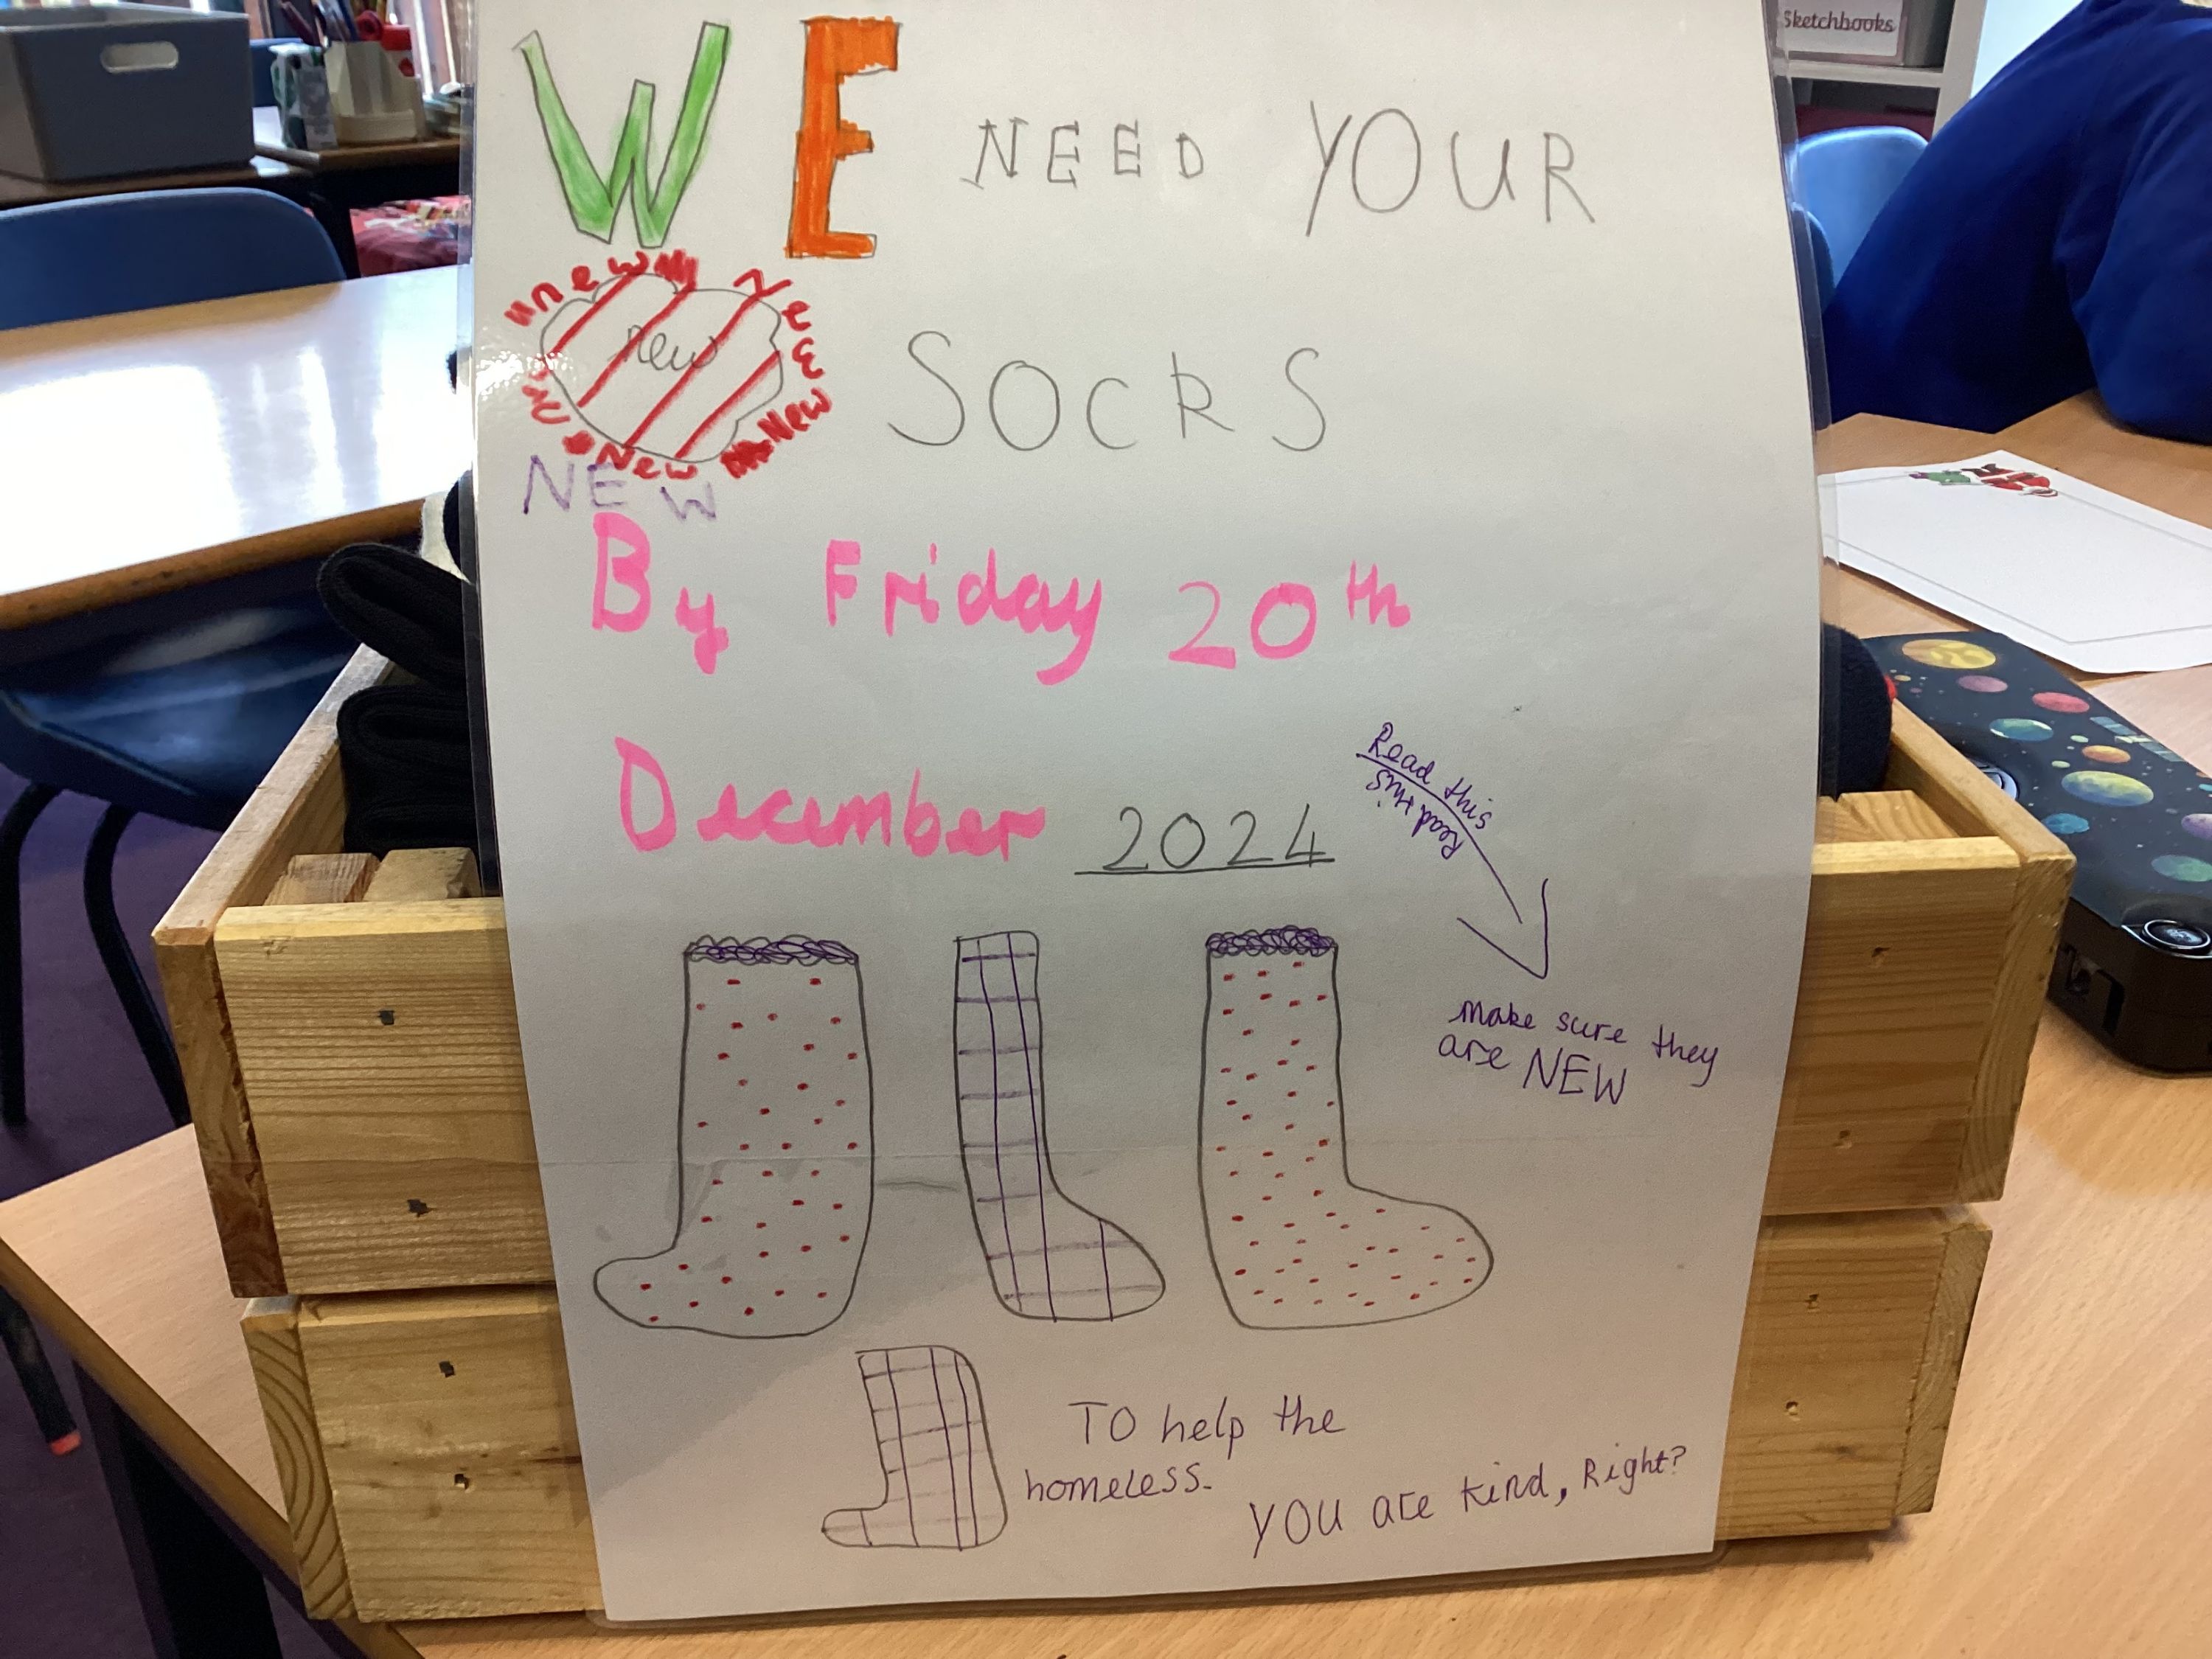 Sketchbooks
WE NEED YOUR
new
new
New
New
NEW
SOCKS
By Friday 20th
December 2024
Read this
Read this
Make sure they
are NEW
To help the
homeless.
YOU are kind, Right?